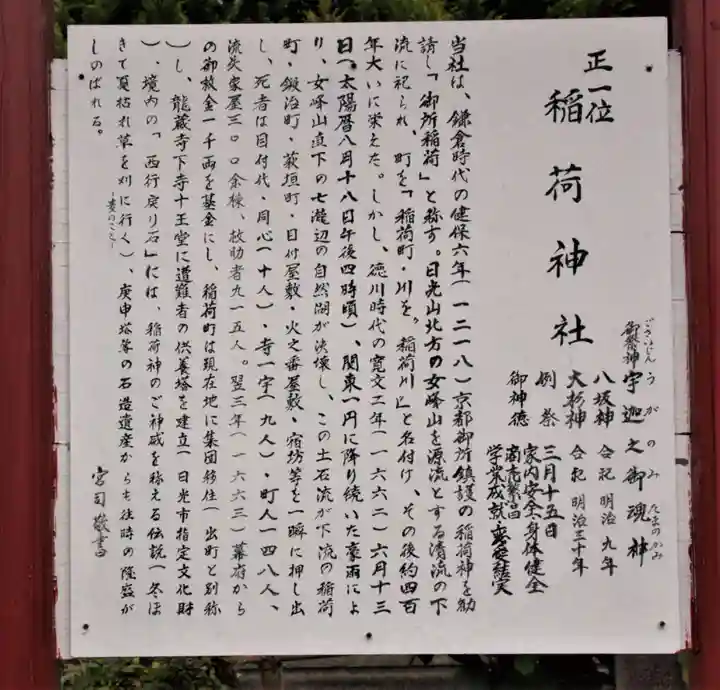 正一位
稲荷神社
御祭神 宇迦之御魂神
ごさいじん うがのみたまのかみ
八坂神 合祀 明治 九年
大杉神 合祀 明治三十年
例祭 三月十五日
御神徳 家内安全、身体健全
商売繁昌
学業成就、
当社は、鎌倉時代の健保六年(一二一八)京都御所鎮護の稲荷神を勧
請し「御所稲荷」と称す。日光山北方の女峰山を源流とする清流の下
流に祀られ、町を「稲荷町・川を。稲荷川」と名付け、その後約四百
年大いに栄えた。しかし、徳川時代の寛文二年(一六六二)六月十三
日(太陽暦八月十八日午後四時頃)、関東一円に降り続いた豪雨によ
り、女峰山直下の七滝辺の自然湖が決壊し、この土石流が下流の稲荷
町・鍛治町・萩垣町・目付屋敷・火之番屋敷・宿坊等を一瞬に押し出
し、死者は目付代・同心(十人)・寺一宇(九人)・町人一四八人、
流失家屋三〇〇余棟、救助者九一五人。翌三年(一六六三)幕府から
の御救金一千両を基金にし、稲荷町は現在地に集団移住(出町と別称
)し、龍蔵寺下寺十王堂に遭難者の供養塔を建立(日光市指定文化財
)、境内の「西行戻り石」には、稲荷神のご神威を称える伝説(冬ほ
きて夏枯れ草を刈に行く)、庚申塔等の石造遺産からも往時の隆盛が
しのばれる。
―麦のこと―
宮司敬書